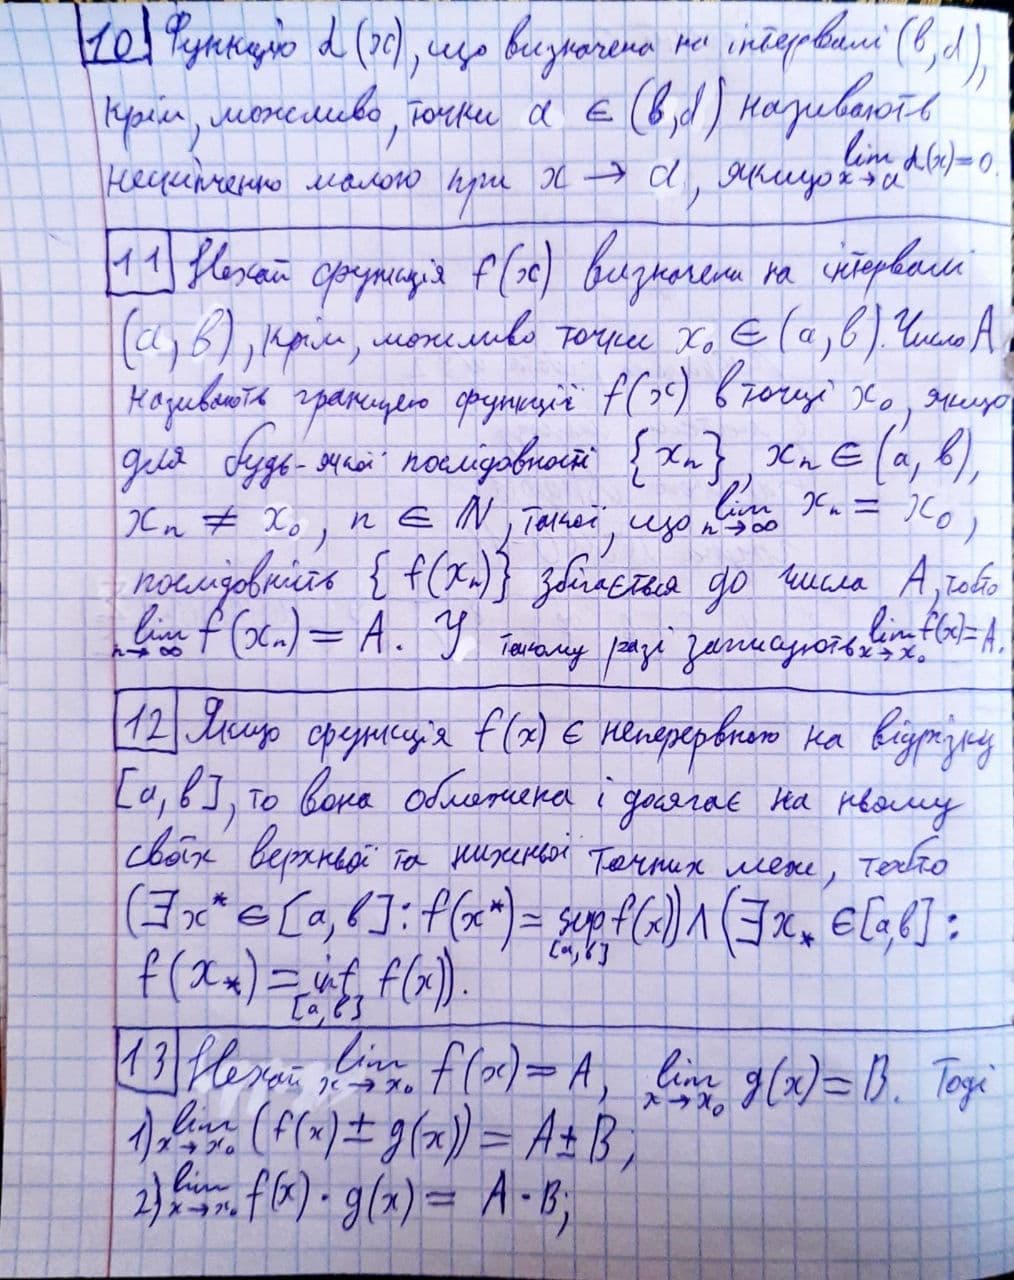 10 Функцію α(x), що визначена на інтервалі (b,d),
крім, можливо, точки a ∈ (b,d) називають
нескінченно малою при x → a, якщо lim x→a α(x)=0.
11 Нехай функція f(x) визначена на інтервалі
(a,b), крім, можливо точки x₀ ∈ (a,b). Число A
називають границею функції f(x) в точці x₀, якщо
для будь-якої послідовності {xₙ}, xₙ ∈ (a,b),
xₙ ≠ x₀, n ∈ N, такої, що lim n→∞ xₙ = x₀,
послідовність {f(xₙ)} збігається до числа A, тобто
lim n→∞ f(xₙ) = A. У такому разі записують lim x→x₀ f(x)=A.
12 Якщо функція f(x) є неперервною на відрізку
[a,b], то вона обмежена і досягає на ньому
своїх верхньої та нижньої точних меж, тобто
(∃x* ∈ [a,b]: f(x*) = sup [a,b] f(x)) ∧ (∃x⁎ ∈ [a,b]:
f(x⁎) = inf [a,b] f(x)).
13 Нехай lim x→x₀ f(x) = A, lim x→x₀ g(x) = B. Тоді
1) lim x→x₀ (f(x) ± g(x)) = A ± B;
2) lim x→x₀ f(x) · g(x) = A · B;